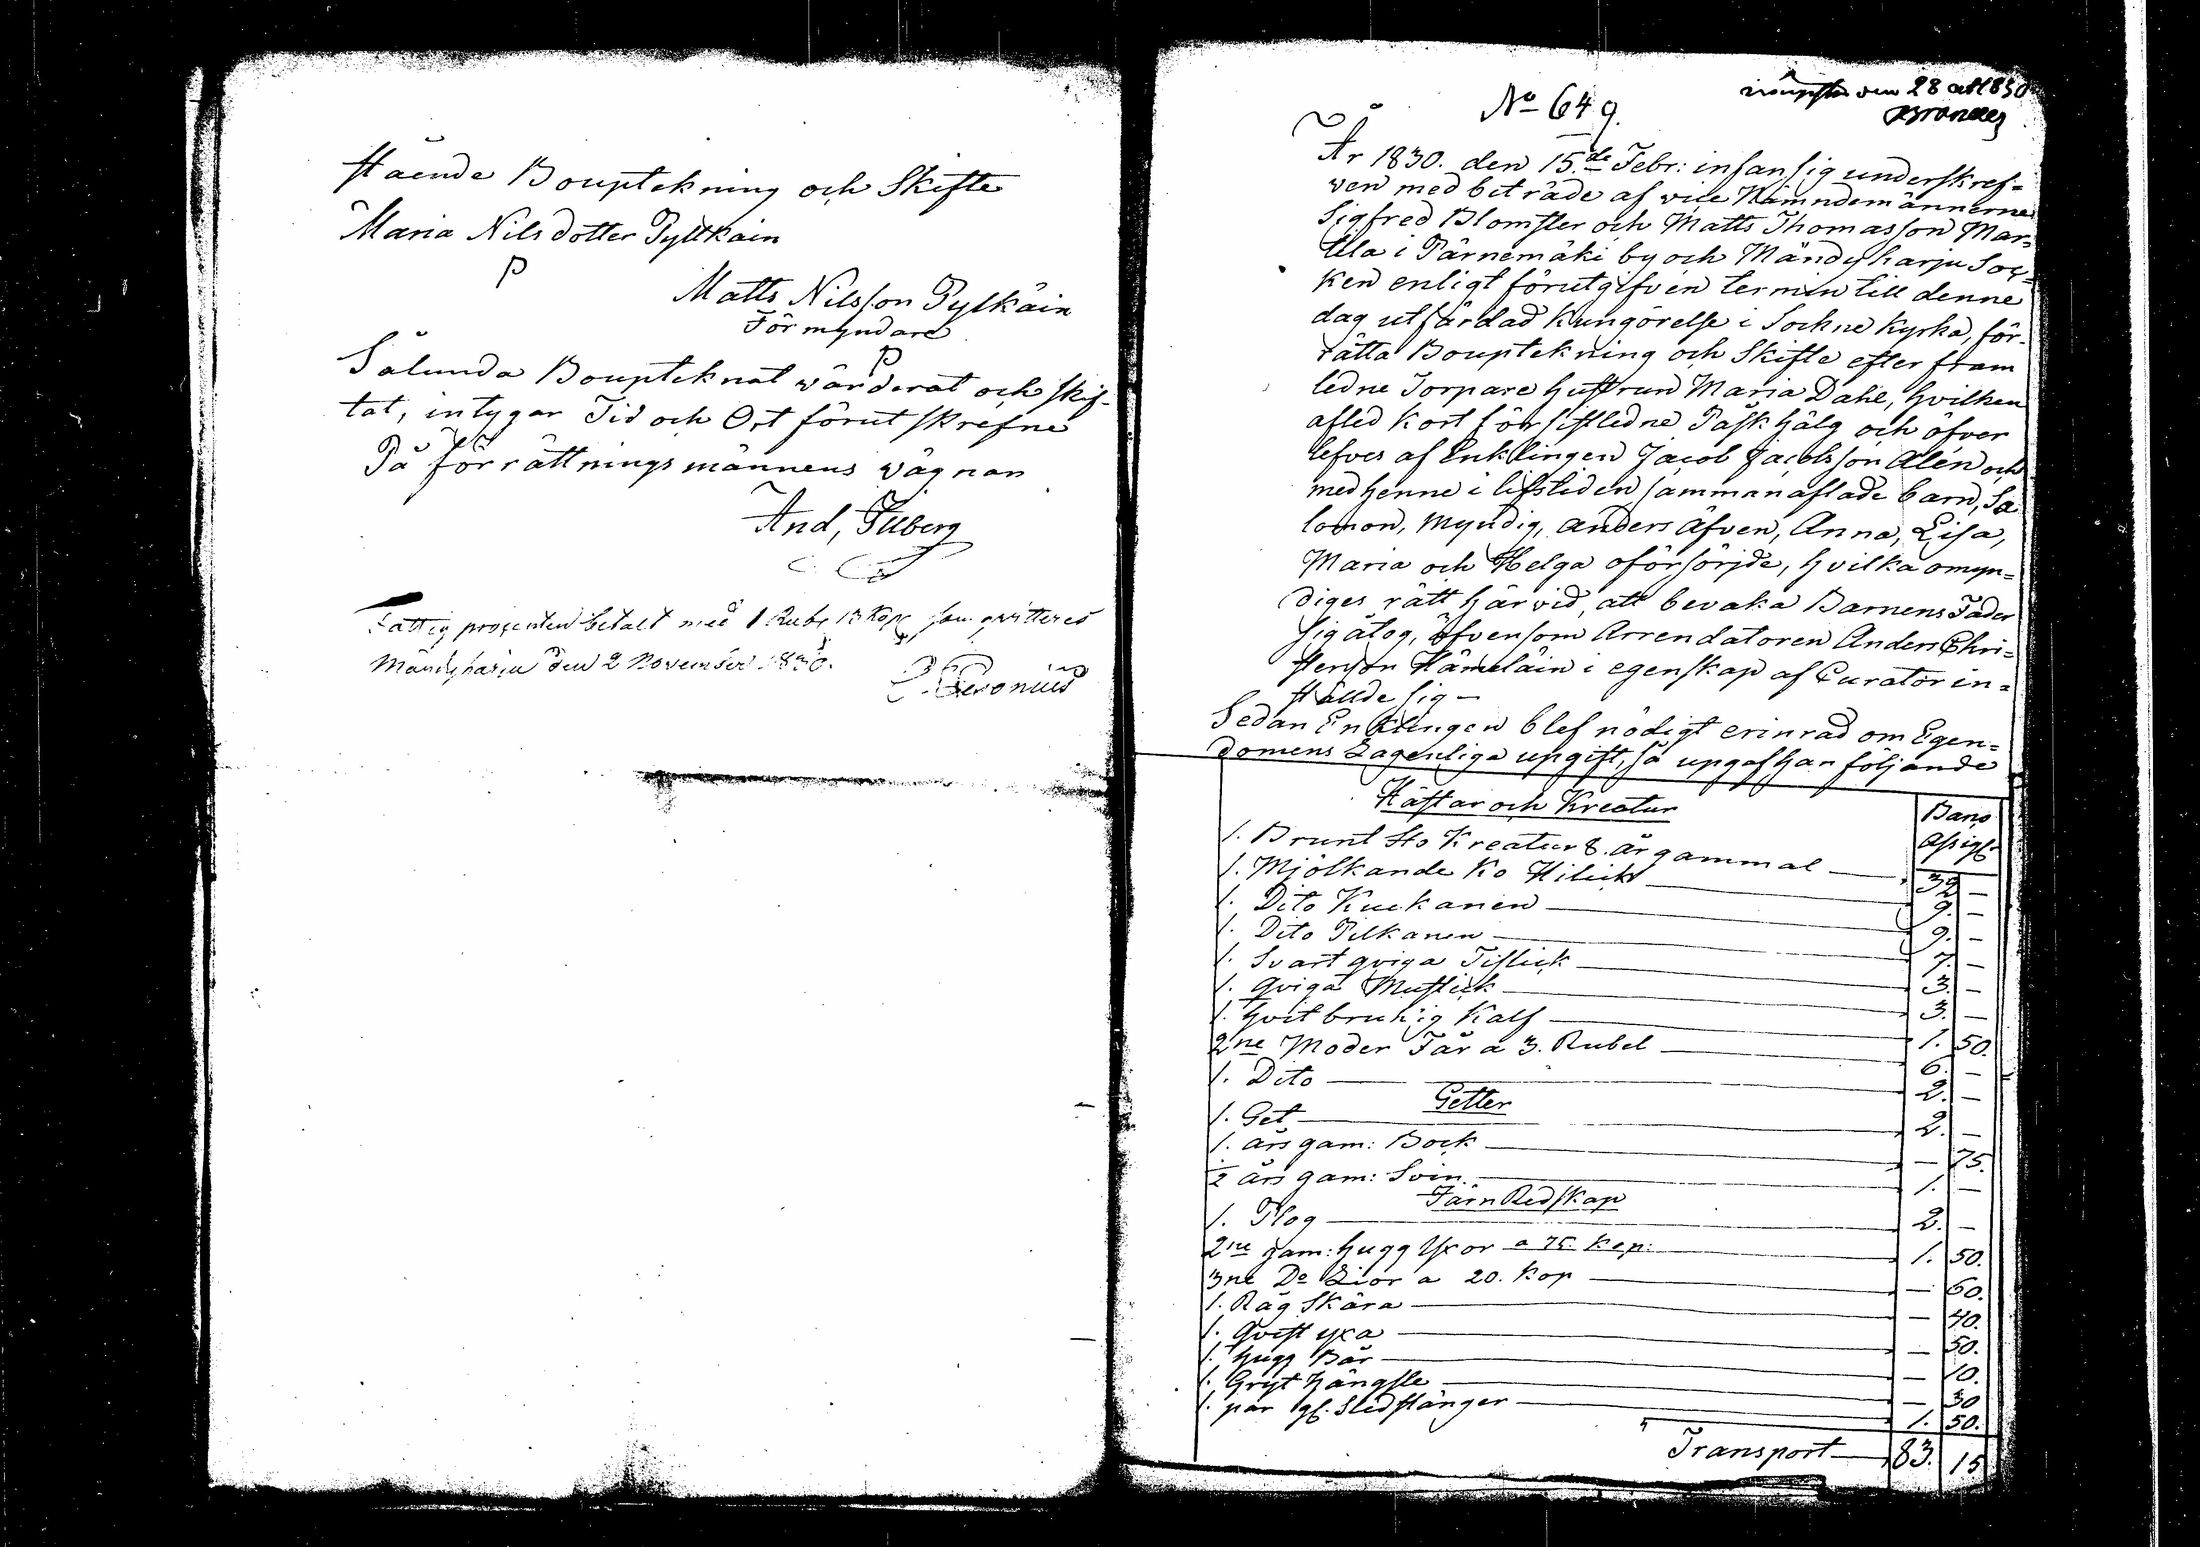 stående Bouptekning och Skifte
Maria Nils dotter Pylkäin
P
Matts Nilsson Pylkäin
Förmyndare
P
Sålunda Boupteknat wärderat och skif-
tat, intygar Tid och Ort förut skrefne
På förrättningsmännens wägnar
And, Filberg
Fattig procenten betalt med 1 Rub 13 Kop som qvitteras
Mändyharju den 2 November 1830.
den 28 1830
No 649.
År 1830. den 15de Febr: infan sig underskref-
wen med biträde af vice Nämndemännerne
Sigfred Blomster och Matts Thomasson Mar-
tila i Pärnemäki by och Mändyharju Soc-
ken enligt förutgifven termin till denne
dag utfärdad Kungörelse i Sockne Kyrka, för-
rätta Bouptekning och Skifte efter fram
ledne Torpare hustrun Maria Dahl, hvilken
afled kort för sistledne Påsk hälg och öfver
lefves af Enklingen Jacob Jacobsson Alén och
med henne i lifstiden sammanaflade barn, Sa
lomon, Myndig, Anders äfven, Anna, Lisa,
Maria och Helga oförsörjde, hvilka omyn-
diges rätt härvid, att bevaka Barnens Fader
sig åtog, äfvensom Arrendatoren Anders Chri-
sterson Hämeläin i egenskap af Curator in-
stälde sig —
Sedan Enklingen blef nödigt erinrad om Egen-
domens Lagenliga upgift, så upgaf han följande
Hästar och Kreatur Banc
Assigt
1. Brunt Sto Kreatur 8. år gammal — 32 —
1. Mjölkande Ko Hilick — 9. —
1. Dito Kuckanen — 9. —
1. Dito Pilkanen — 7. —
1. Svart qviga Tistick — 3. —
1. Qviga Mustick — 3. —
1. Hvit brukig Kalf — 1. 50.
2ne Moder Får a 3. Rubel — 6. —
1. Dito — 2. —
Getter
1. Get — 2. —
1. års gam: Bock — — 75.
1/2 års gam: Svin — 1. —
Järn Redskap
1. Plog — 2. —
2ne gam: hugg Yxor a 75. Kop: 1. 50.
3ne Do Lior a 20. Kop — — 60.
1. Råg Skära — — 40.
1. Qvist yxa — — 50.
1. hugg Bår — — 10.
1. Gryt hängsle — — 30
1. par gl: Sledstänger — 1. 50.
Transport — 83. 15